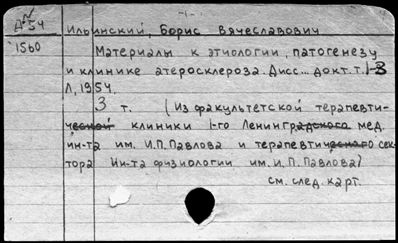 Д-54
Ильинский, Борис Вячеславович
1560
Материалы к этиологии, патогенезу
и клинике атеросклероза. Дисс... докт. Т. 1-3
Л, 1954.
3 т. (Из факультетской терапевти-
ческой клиники 1-го Ленинградского мед.
ин-та им. И.П. Павлова и терапевтического сек-
тора Ин-та физиологии им. И.П. Павлова)
см. след. карт.